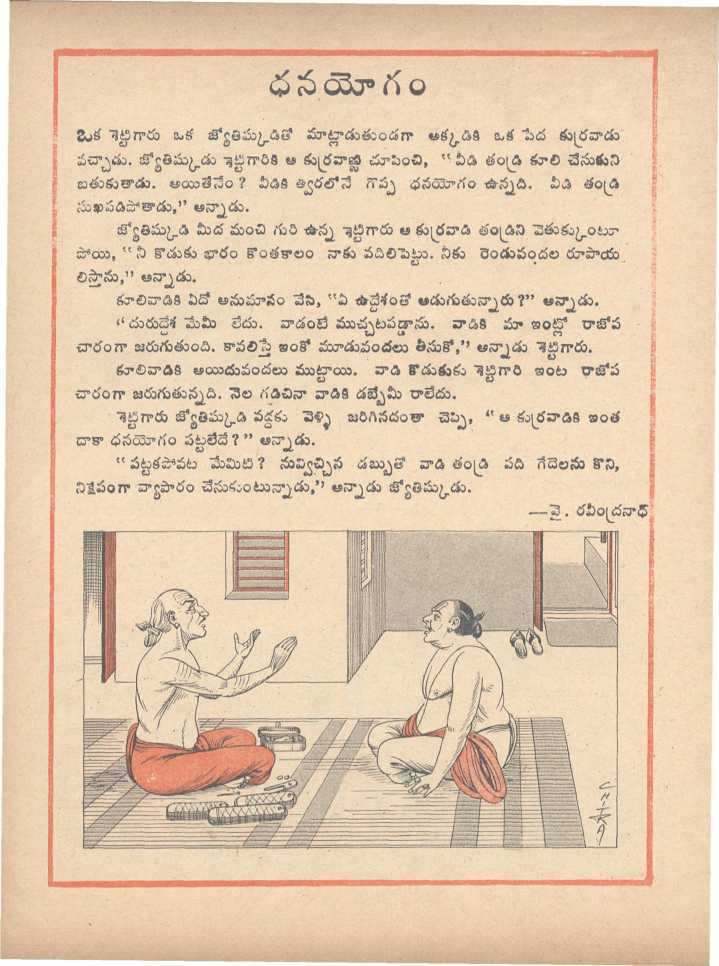 ధనయోగం
ఒక శెట్టిగారు ఒక జ్యోతిష్కుడితో మాట్లాడుతుండగా అక్కడికి ఒక పేద కుర్రవాడు
వచ్చాడు. జ్యోతిష్కుడు శెట్టిగారికి ఆ కుర్రవాణ్ణి చూపించి, “వీడి తండ్రి కూలి చేసుకుని
బతుకుతాడు. అయితేనేం? వీడికి త్వరలోనే గొప్ప ధనయోగం ఉన్నది. వీడి తండ్రి
సుఖపడిపోతాడు,” అన్నాడు.
జ్యోతిష్కుడి మీద మంచి గురి ఉన్న శెట్టిగారు ఆ కుర్రవాడి తండ్రిని వెతుక్కుంటూ
పోయి, “నీ కొడుకు భారం కొంతకాలం నాకు వదిలిపెట్టు. నీకు రెండువందల రూపాయ
లిస్తాను,” అన్నాడు.
కూలివాడికి ఏదో అనుమానం వేసి, “ఏ ఉద్దేశంతో అడుగుతున్నారు?” అన్నాడు.
“దురుద్దేశ మేమీ లేదు. వాడంటే ముచ్చటపడ్డాను. వాడికి మా ఇంట్లో రాజోప
చారంగా జరుగుతుంది. కావలిస్తే ఇంకో మూడువందలు తీసుకో,” అన్నాడు శెట్టిగారు.
కూలివాడికి అయిదువందలు ముట్టాయి. వాడి కొడుకుకు శెట్టిగారి ఇంట రాజోప
చారంగా జరుగుతున్నది. నెల గడిచినా వాడికి డబ్బేమీ రాలేదు.
శెట్టిగారు జ్యోతిష్కుడి వద్దకు వెళ్ళి జరిగినదంతా చెప్పి, “ఆ కుర్రవాడికి ఇంత
దాకా ధనయోగం పట్టలేదే?” అన్నాడు.
“పట్టకపోవట మేమిటి? నువ్విచ్చిన డబ్బుతో వాడి తండ్రి పది గేదెలను కొని,
నిక్షేపంగా వ్యాపారం చేసుకుంటున్నాడు,” అన్నాడు జ్యోతిష్కుడు.
—వై. రవీంద్రనాథ్
CHITRA